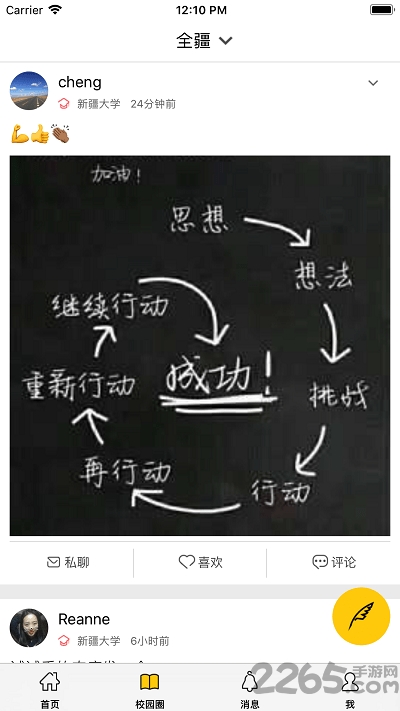 Carrier 12:10 PM
全疆
cheng
新疆大学 24分钟前
加油!
思想
想法
挑战
行动
再行动
重新行动
继续行动
成功!
私聊 喜欢 评论
Reanne
新疆大学 6小时前
首页 校园圈 消息 我
2265手游网
.com